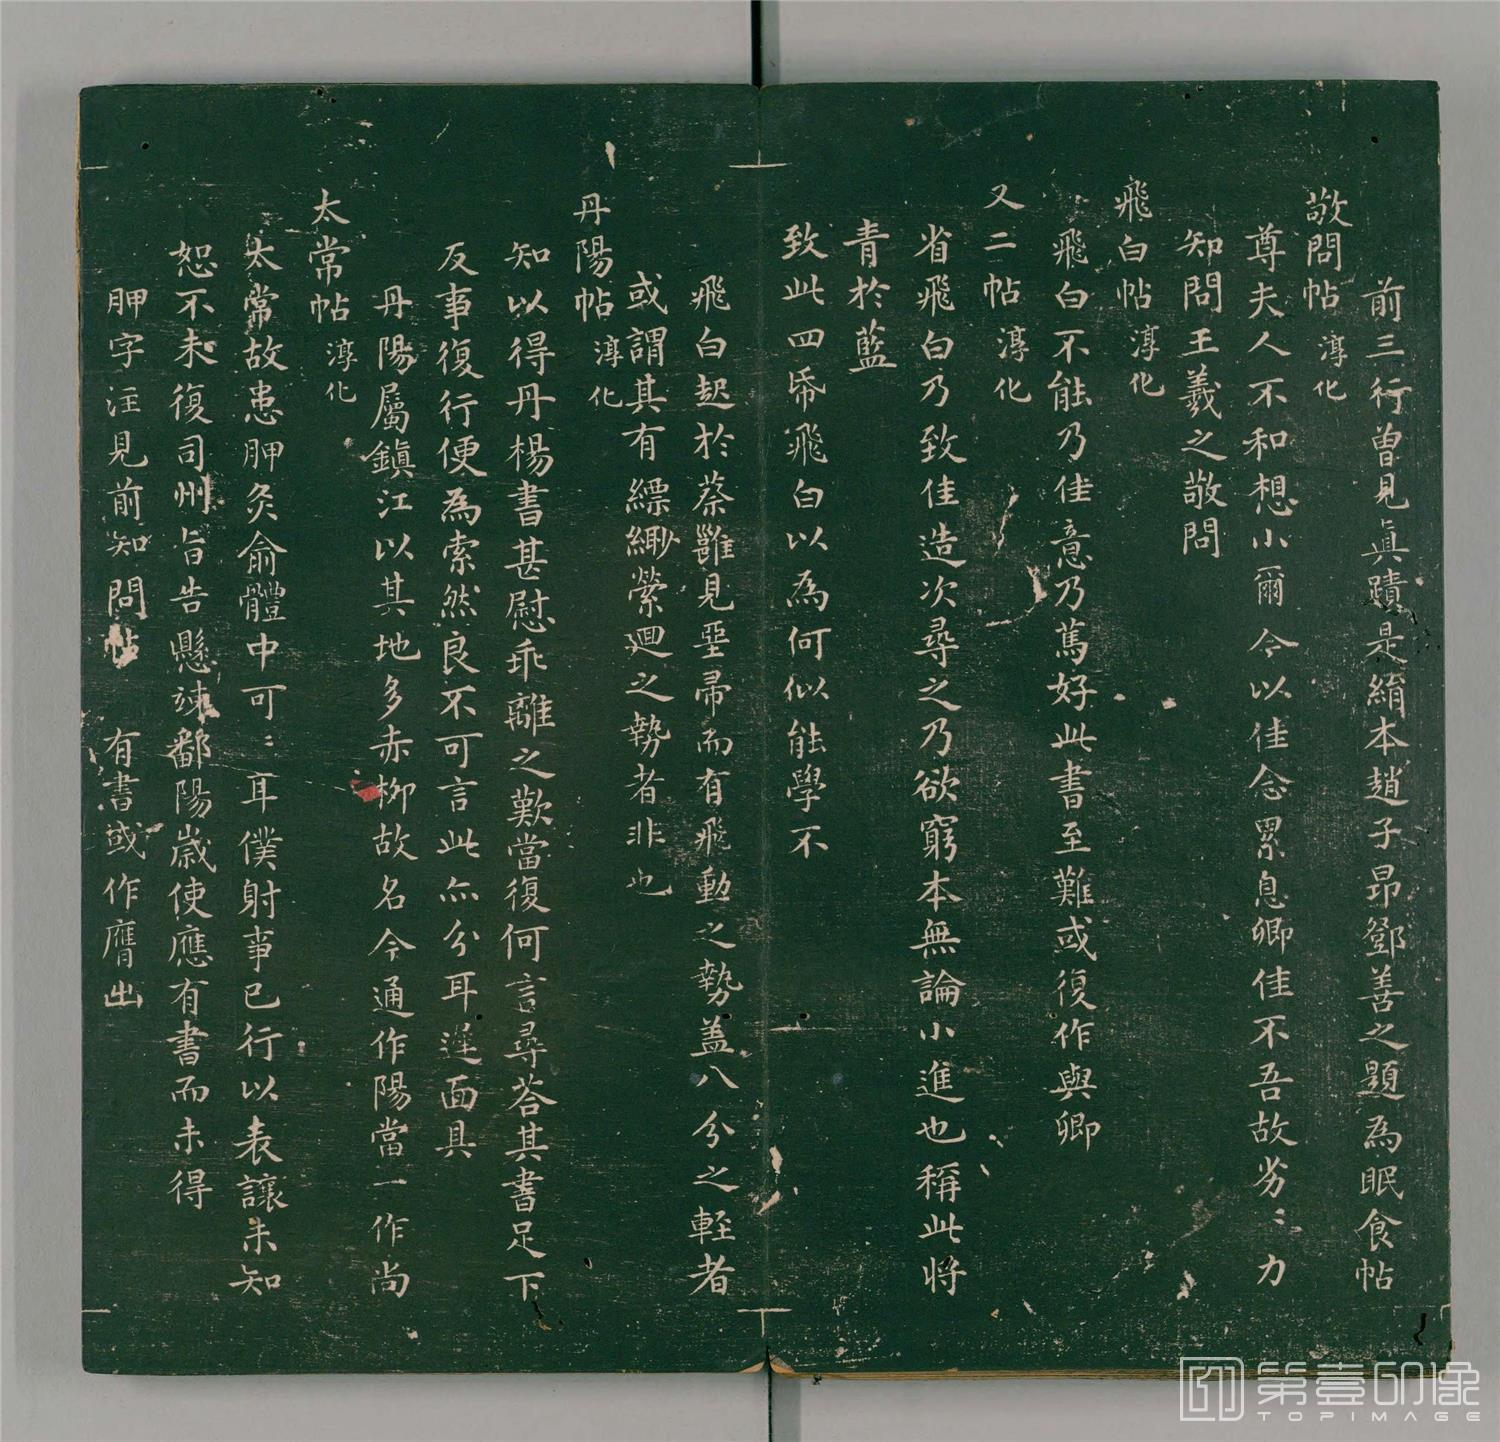 前三行曾見真蹟是絹本趙子昻鄧善之題為眠食帖
敬問帖 淳化
尊夫人不和想小爾今以佳念累息卿佳不吾故劣〻力
知問王羲之敬問
飛白帖 淳化
飛白不能乃佳意乃篤好此書至難或復作與卿
又二帖 淳化
省飛白乃致佳造次尋之乃欲窮本無論小進也稱此將
青於藍
致此四帋飛白以為何似能學不
飛白起於蔡邕見堊帚而有飛動之勢蓋八分之輕者
或謂其有縹緲縈迴之勢者非也
丹陽帖 淳化
知以得丹楊書甚慰乖離之歎當復何言尋荅其書足下
反事復行便為索然良不可言此亦分耳遲面具
丹陽屬鎮江以其地多赤柳故名今通作陽當一作尚
太常帖 淳化
太常故患胛灸俞體中可〻耳僕射事已行以表讓未知
恕不未復司州旨告懸竦鄱陽歲使應有書而未得
胛字注見前知問帖 有書或作膺出
第壹印像
TOPIMAGE